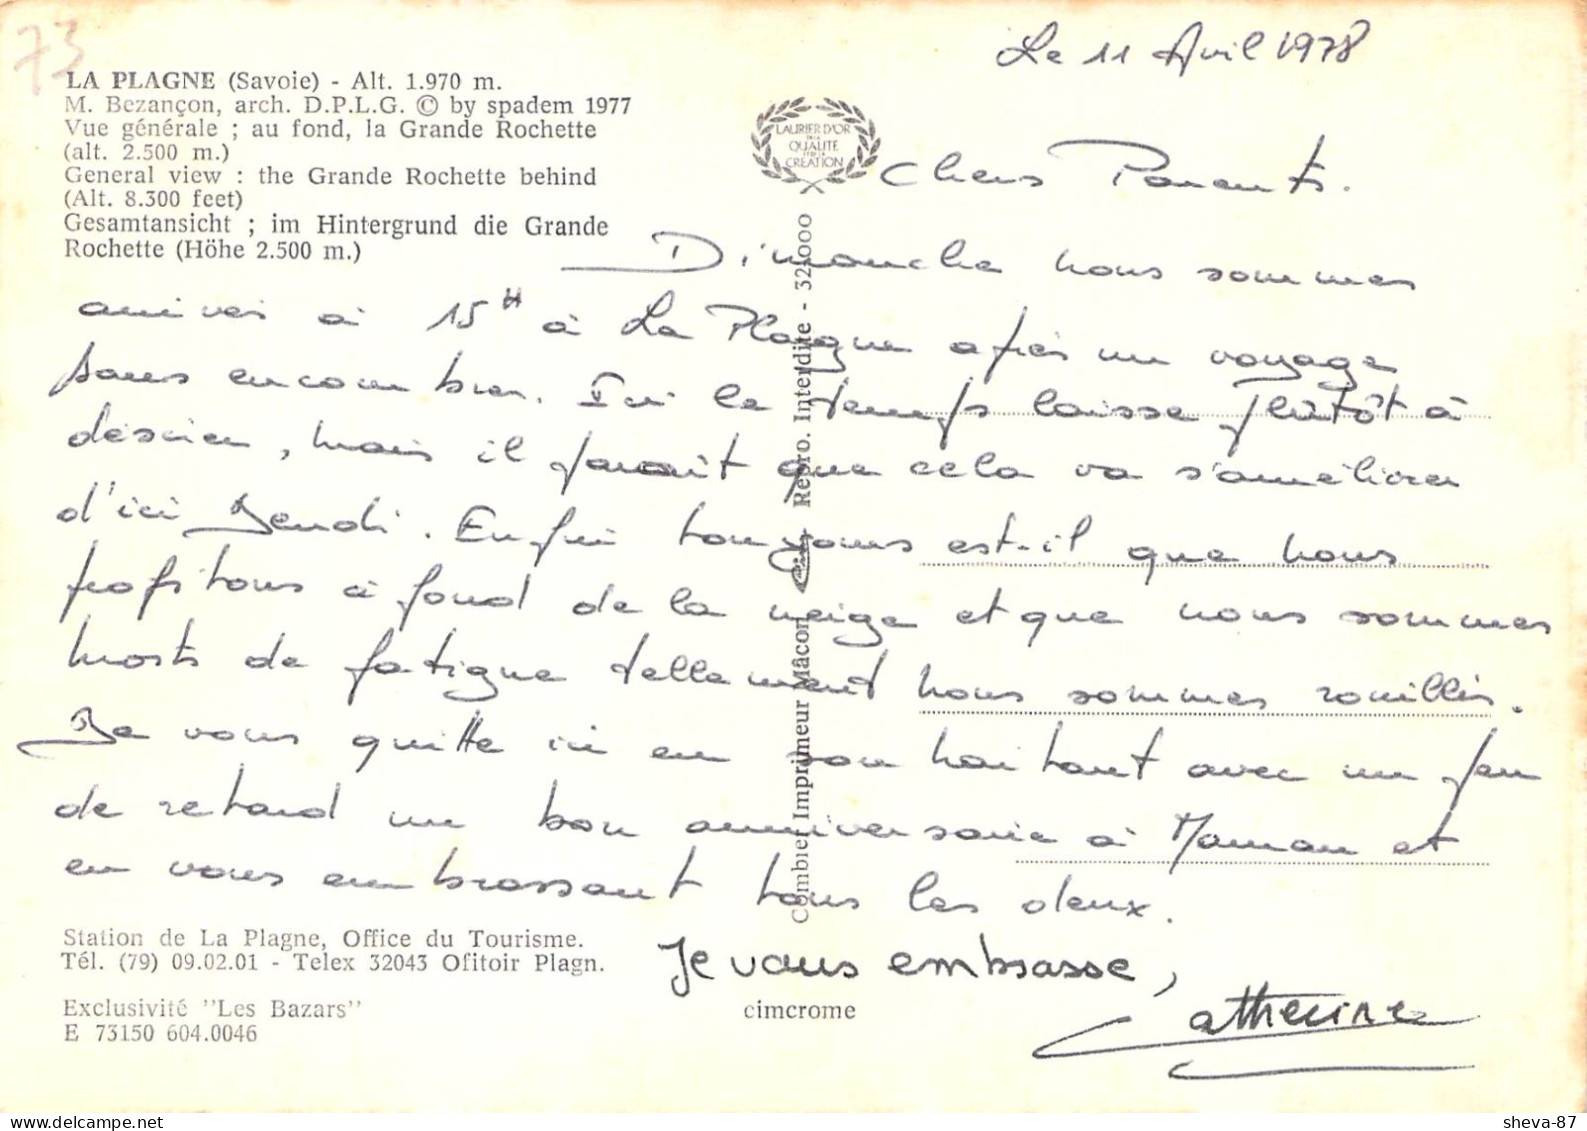 73
Le 11 Avril 1978
LA PLAGNE (Savoie) - Alt. 1.970 m.
M. Bezançon, arch. D.P.L.G. © by spadem 1977
Vue générale ; au fond, la Grande Rochette
(alt. 2.500 m.)
General view : the Grande Rochette behind
(Alt. 8.300 feet)
Gesamtansicht ; im Hintergrund die Grande
Rochette (Höhe 2.500 m.)
LAURIER D'OR
DE LA
QUALITÉ
ET DE LA
CRÉATION
Chers Parents.
Dimanche nous sommes
arrivés à 15H à La Plagne après un voyage
sans encombres. Ici le temps laisse plûtôt à
désirer, mais il parait que cela va s'améliorer
d'ici Jeudi. Enfin toujours est-il que nous
profitons à fond de la neige et que nous sommes
morts de fatigue tellement nous sommes rouillés.
Je vous quitte ici en souhaitant avec un peu
de retard un bon anniversaire à Maman et
en vous embrassant tous les deux.
Je vous embrasse,
Catherine
Combier Imprimeur Mâcon
Repro. Interdite - 321000
Station de La Plagne, Office du Tourisme.
Tél. (79) 09.02.01 - Telex 32043 Ofitoir Plagn.
Exclusivité "Les Bazars"
E 73150 604.0046
cimcrome
sheva-87